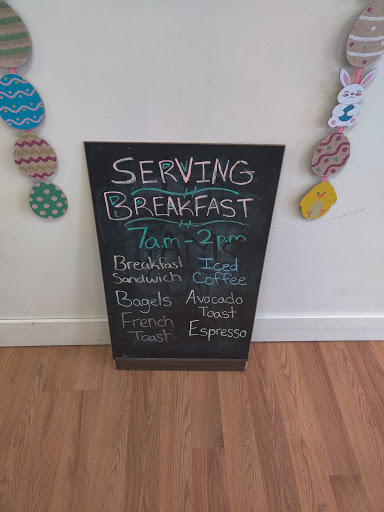 SERVING
BREAKFAST
7am - 2pm
Breakfast
Sandwich
Bagels
French
Toast
Iced
Coffee
Avocado
Toast
Espresso